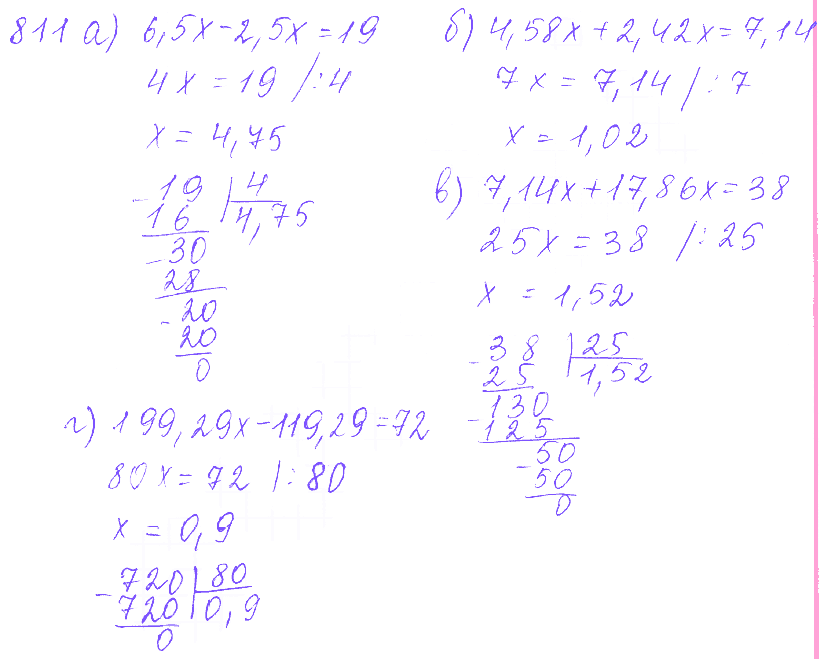 811 а) 6,5x-2,5x=19
4x=19 /:4
x=4,75
-19 | 4
16 | 4,75
-30
28
-20
20
0
б) 4,58x+2,42x=7,14
7x=7,14/:7
x=1,02
в) 7,14x+17,86x=38
25x=38 /:25
x=1,52
-38 | 25
25 | 1,52
-130
125
-50
50
0
г) 199,29x-119,29=72
80x=72 /:80
x=0,9
-720 | 80
720 | 0,9
0